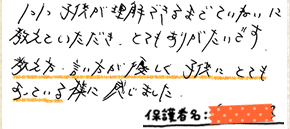 1:1、子供が理解できるまでていねいに
教えていただき、とてもありがたいです。
教え方、言い方が優しく子供にとても
あっている様に感じました。
保護者名: